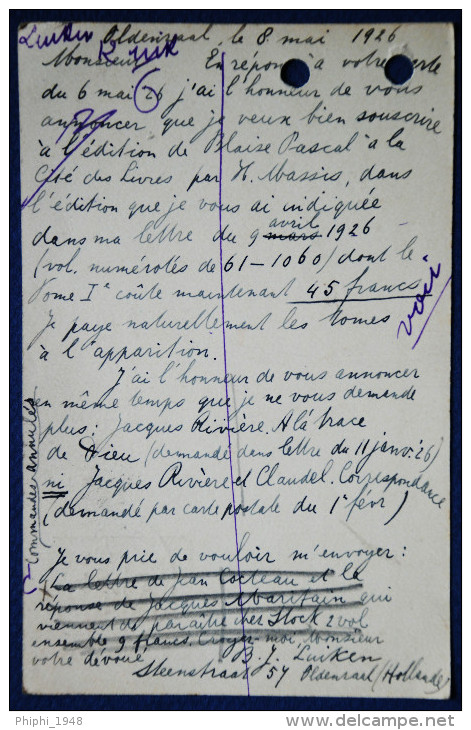 Luiken
Oldenzaal, le 8 mai 1926
Monsieur En réponse à votre carte
du 6 mai 26 j'ai l'honneur de vous
annoncer que je veux bien souscrire
à l'édition de Blaise Pascal à la
Cité des Livres par H. Massis, dans
l'édition que je vous ai indiquée
avril
dans ma lettre du 9 mars 1926
(vol. numérotés de 61-1060) dont le
Tome Ier coûte maintenant 45 francs
voir
Je paye naturellement les tomes
à l'apparition.
J'ai l'honneur de vous annoncer
en même temps que je ne vous demande
plus: Jacques Rivière. A la trace
de Dieu (demandé dans lettre du 11 janv. 26)
ni Jacques Rivière et Claudel. Correspondance
(demandé par carte postale du 1er févr)
Commandes annulées
Je vous prie de vouloir m'envoyer:
La lettre de Jean Cocteau et la
réponse de Jacques Maritain qui
viennent de paraître chez Stock 2 vol
ensemble 9 francs. Croyez-moi, Monsieur
votre dévoué, B. J. Luiken
Steenstraat 57 Oldenzaal (Hollande)
Phiphi_1948